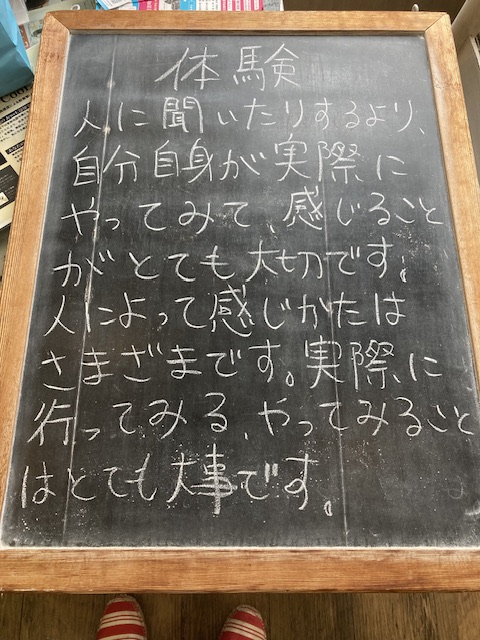 体験
人に聞いたりするより、
自分自身が実際に
やってみて、感じること
がとても大切です。
人によって感じかたは
さまざまです。実際に
行ってみる、やってみること
はとても大事です。